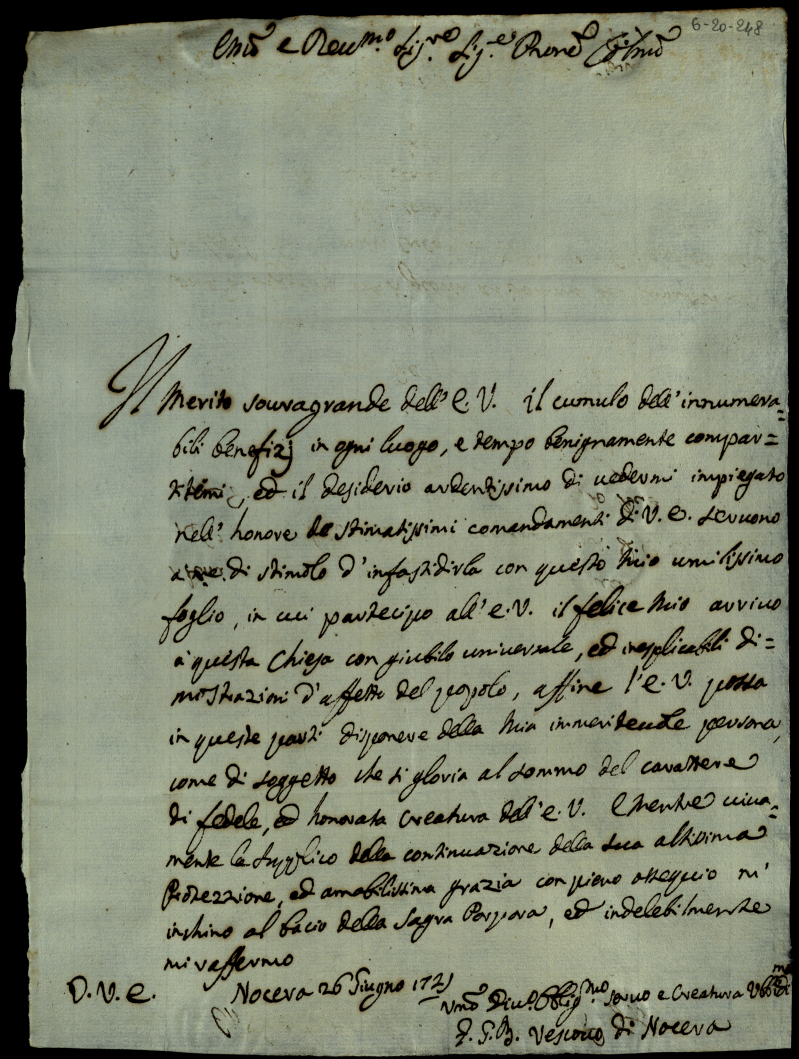 6-20-248
Emo e Reumo Sigre Sigre Prone Colmo
Il Merito souragrande dell' E. V. il cumulo dell' innumera=
bili benefizj in ogni luogo, e tempo benignamente compar=
titimi, ed il desiderio ardentissimo di uedermi impiegato
nell' honore de stimatissimi comandamenti di V. E. seruono
a me di stimolo d' infastidirla con questo mio umilissimo
foglio, in cui partecipo all' E. V. il felice mio arriuo
a questa Chiesa con giubilo uniuersale, ed inesplicabili di=
mostrazioni d' affetto del popolo, affine l' E. V. possa
in queste parti disponere della mia immeriteuole persona,
come di soggetto che si gloria al sommo del carattere
di fedele, ed honorata Creatura dell' E. V. E mentre uiua=
mente la supplico della continuazione della sua altissima
Protezzione, ed amabilissima grazia con pieno ossequio m'
inchino al bacio della Sagra Porpora, ed indelebilmente
mi raffermo
D. V. E. Nocera 26 Giugno 1721
Vmo Diuo Obbligmo seruo e Creatura
F. G. B. Vescouo di Nocera